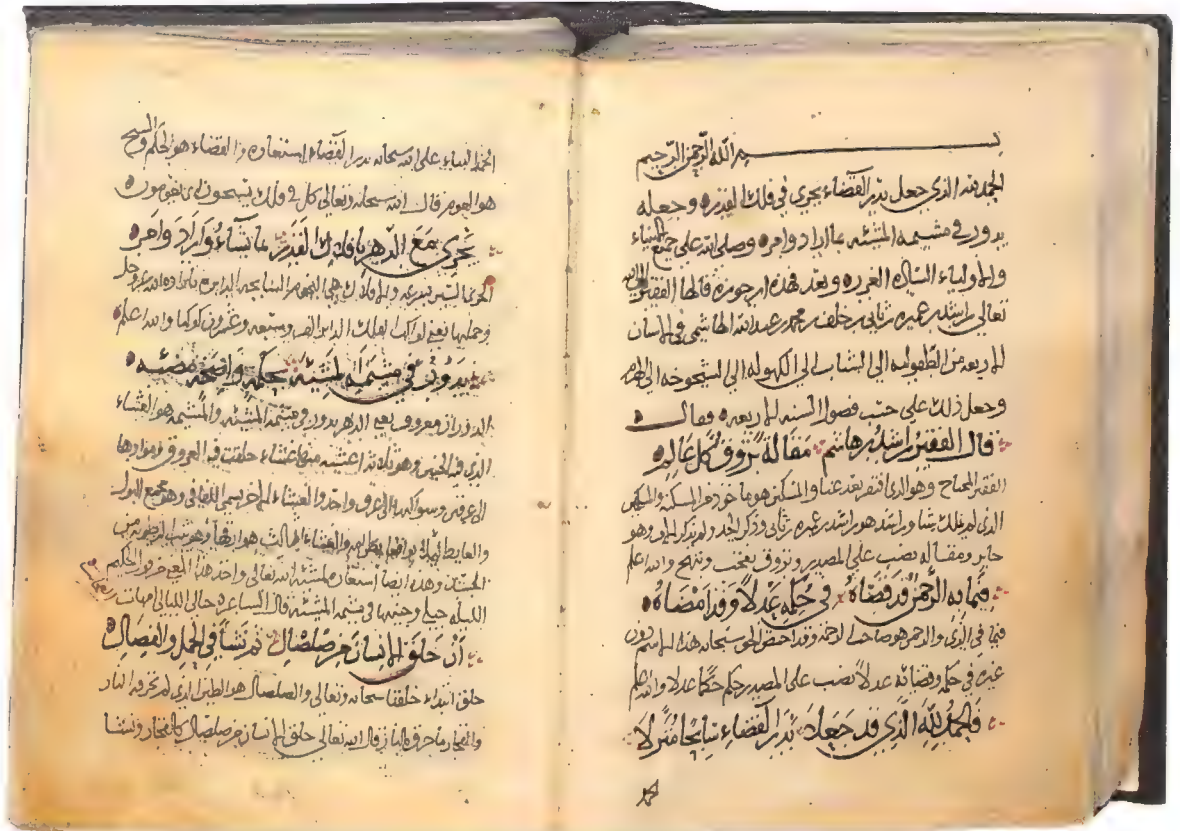 بسم الله الرحمن الرحيم
الحمد لله الذي جعل بدر القضاء يجري في فلك القدره وجعله
يدور في مشيمه المشئه بما اراد وامره وصلى الله على جميع
والاولياء الساده الغرره وبعد فهذه ارجوزه قالها الفقير
تعالى راشد بن عميره بن ثاني بن خلف بن محمد بن عبد الله الهاشمي في الانسان
لاربعه من الطفوليه الى الشباب الى الكهوله الى الشيخوخه الى
وجعل ذلك على حسب فصول السنه الاربعه وقال
قال الفقير راشد بن هاشم مقالة تروق كل عالم
الفقير المحتاج وهو الذي افتقر بعد غنا والمسكين هو ماخوذ من المسكنه والمسكين
الذي لم يملك شيا وراشد هو راشد بن عميره بن ثاني وذكر الجد ولم يذكر الاب وهو
جايز ومقاله نصب على المصدر وتروق تعجب وتبهج والله اعلم
فيما به الرحمن قد قضاه في حكمه عدلا وقد امضاه
فيما في الذي والرحمن هو صاحب الرحمة وقد اختص الحق سبحانه هذا الاسم دون
غيره في حكمه وقضائه عدلا نصب على المصدر حكم حكما عدلا والله اعلم
فالحمد لله الذي قد جعلا بدر القضاء سابحا منزلا
الحمد الثناء على الله سبحانه بدر القضاء استعاره والقضاء هو الحكم والسبح
هو العوم قال الله سبحانه وتعالى كل في فلك يسبحون اي يعومون
يجري مع الدهر بافلاك القدر بما يشاء واراد وامر
الجري السير بسرعه والافلاك هي النجوم السابحه الدايره باراده الله عز وجل
وجملها يعني لواكب الفلك الدايرات الف وسبعه وعشرون كوكبا والله اعلم
يدور في مشيمة المشئه حكمة واضحة مضئه
الدوران معروف يعني الدهر يدور في مشيمة المشئه والمشيمه هو الغشاء
الذي فيه الجنين وهو ثلاثة اغشيه منها غشاء خلقت فيه العروق
الى عرقين وسواكنها الى عرق واحد والغشاء الاخر يسمى اللفافي وهو مجمع البول
والغشاء الثالث
الجنين وهذه ايضا استعاره لمشئة الله تعالى واخذ هذا المعنى من قول الحكيم
الليله حبلى وجنينها في مشيمة المشئه قال الشاعر دحالي الليالي امهات
ان خلق الانسان من صلصال ثم نشا في الحمل والفصال
خلق ابتداء خلقنا سبحانه وتعالى والصلصال هو الطين الذي لم تحرقه النار
والفخار ما حرق بالنار قال الله تعالى خلق الانسان من صلصال كالفخار ونشا